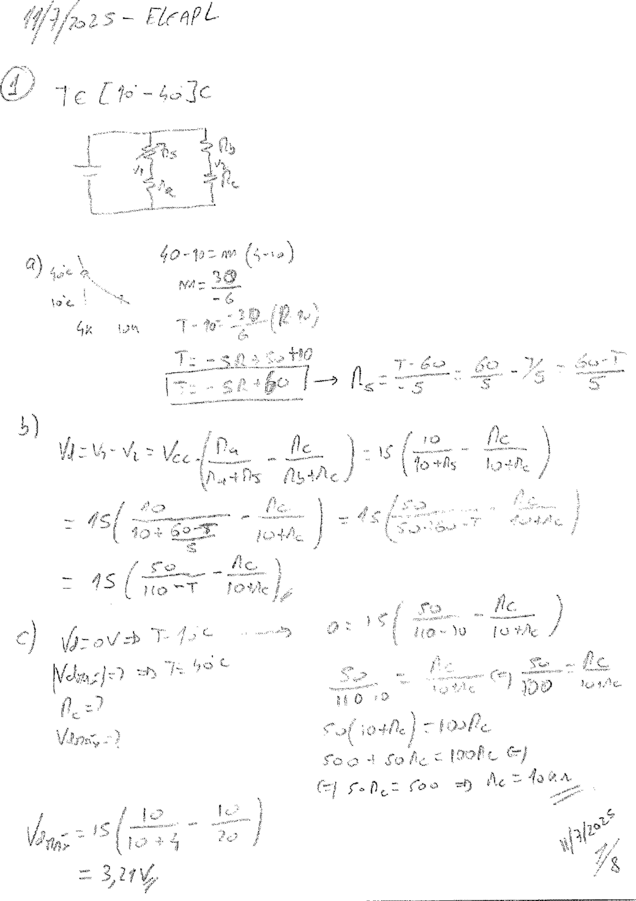 11/7/2025 - ELEAPL
1 T ∈ [10° - 40°]C
Rs Rb
V1 V2
Ra Rc
a) 40°C
10°C
4k 10k
40-10 = m (4-10)
m = 30/-6
T - 10 = -30/6 (R-10)
T = -5R + 50 + 10
T = -5R + 60 → Rs = T-60/-5 = 60/5 - T/5 = 60-T/5
b) Vd = V1 - V2 = Vcc · (Ra/Ra+Rs - Rc/Rb+Rc) = 15 (10/10+Rs - Rc/10+Rc)
= 15 (10/10+60-T/5 - Rc/10+Rc) = 15 (50/50+60-T - Rc/10+Rc)
= 15 (50/110-T - Rc/10+Rc)
c) Vd = 0V ⇒ T = 10°C → 0 = 15 (50/110-10 - Rc/10+Rc)
|Vdmax| = ? ⇒ T = 40°C
Rc = ?
Vdmax = ?
50/110-10 = Rc/10+Rc (=) 50/100 = Rc/10+Rc
50(10+Rc) = 100Rc
500 + 50Rc = 100Rc (=)
(=) 50Rc = 500 ⇒ Rc = 10kΩ
Vdmax = 15 (10/10+4 - 10/20)
= 3,21V
11/7/2025
1/8